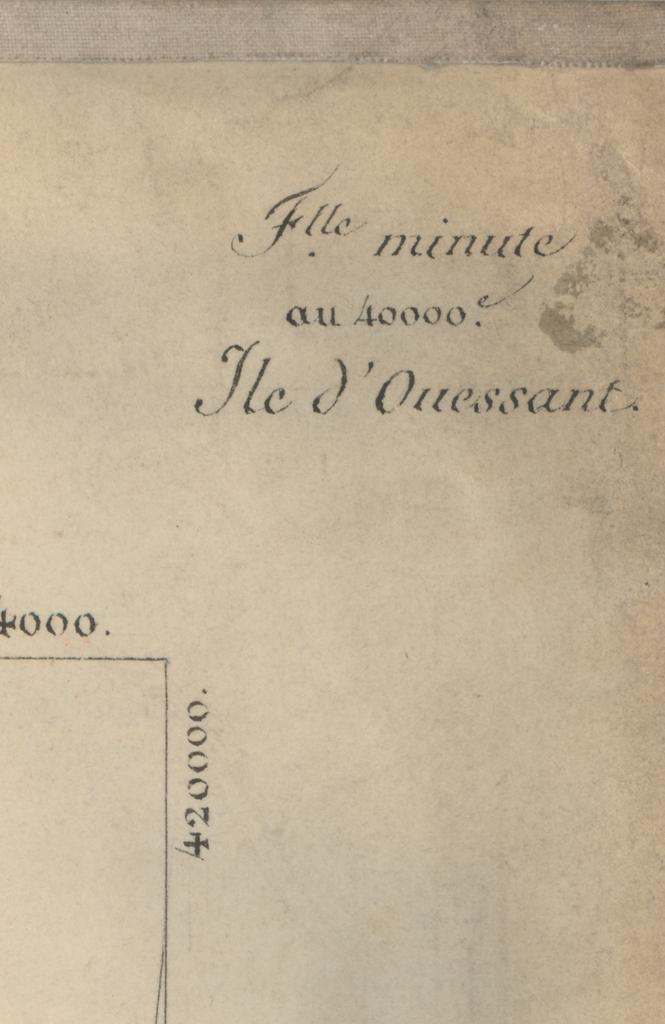 F.lle minute
au 40000.e
Ile d'Ouessant.
4000.
420000.